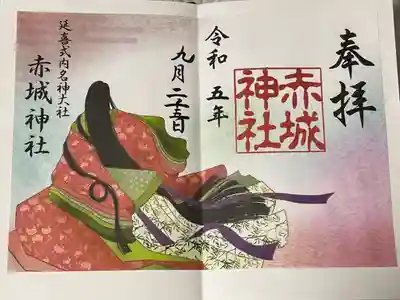 奉拝
赤城
神社
令和五年
九月二十五日
延喜式内名神大社
赤城神社